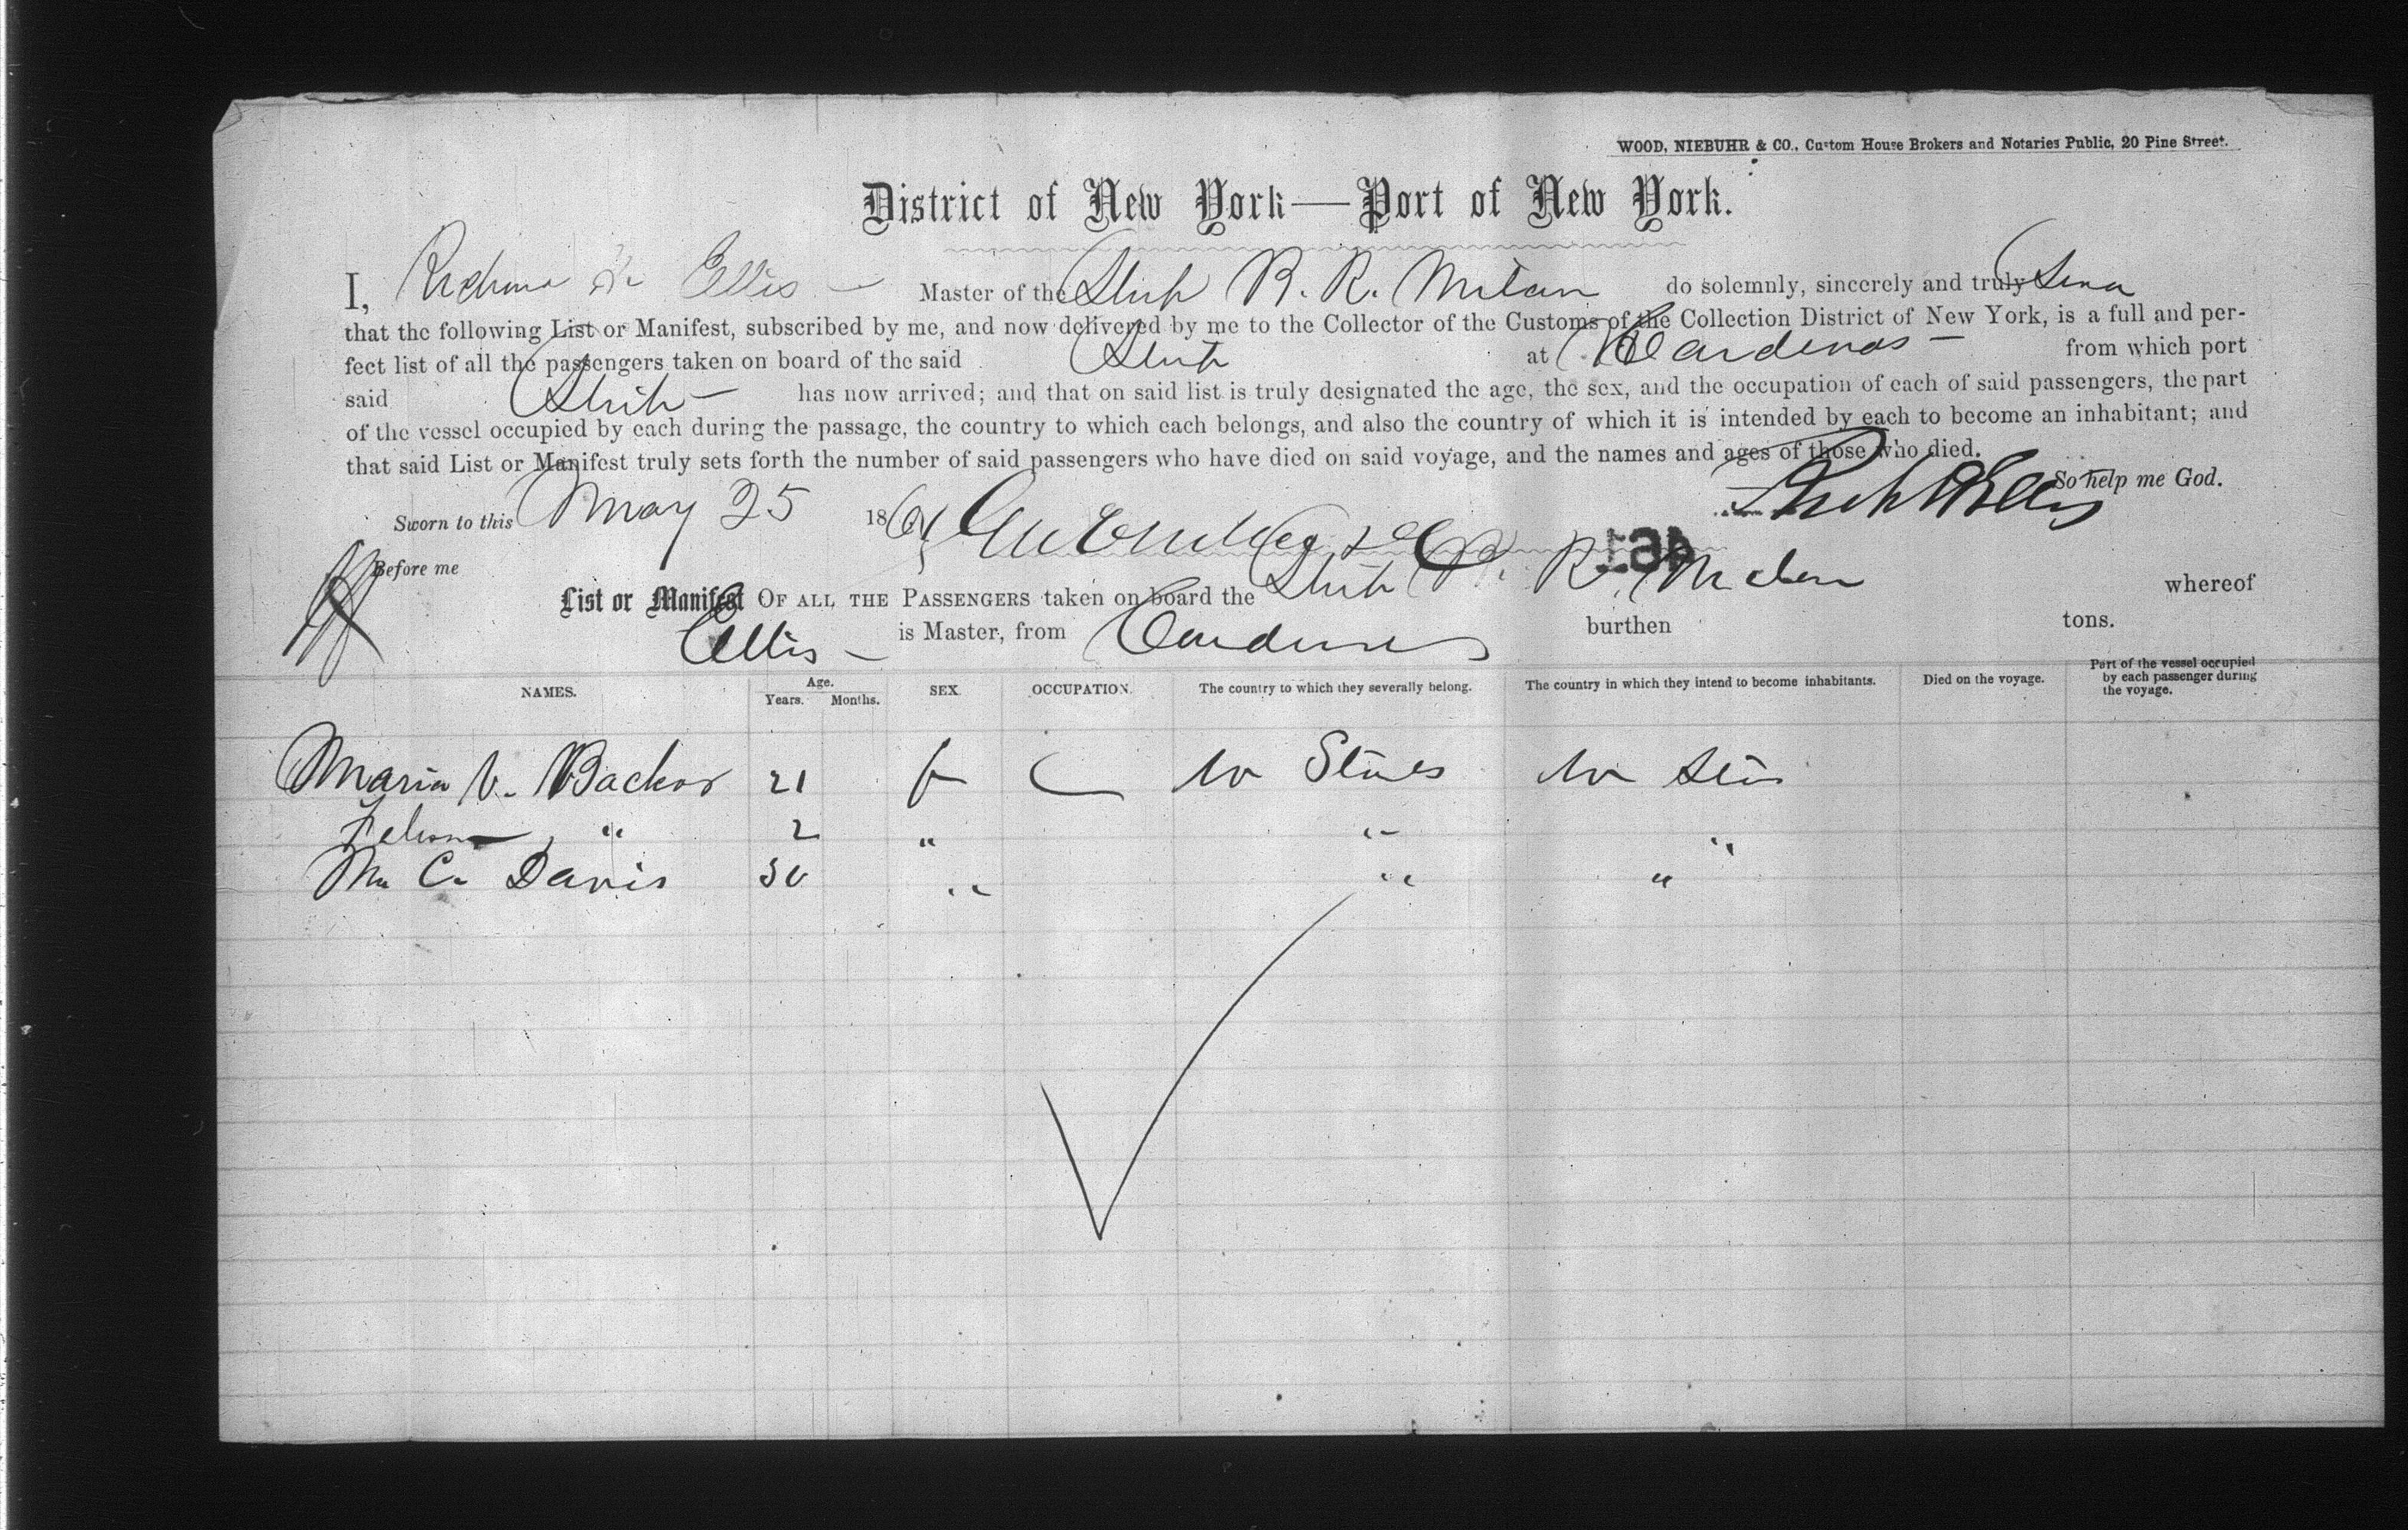 WOOD, NIEBUHR & CO., Custom House Brokers and Notaries Public, 20 Pine Street.
District of New York—Port of New York.
I, Ellis — Master of the Ship R. R. Milan do solemnly, sincerely and truly
that the following List or Manifest, subscribed by me, and now delivered by me to the Collector of the Customs of the Collection District of New York, is a full and per-
fect list of all the passengers taken on board of the said Ship at Cardenas — from which port
said Ship — has now arrived; and that on said list is truly designated the age, the sex, and the occupation of each of said passengers, the part
of the vessel occupied by each during the passage, the country to which each belongs, and also the country of which it is intended by each to become an inhabitant; and
that said List or Manifest truly sets forth the number of said passengers who have died on said voyage, and the names and ages of those who died.
So help me God.
Sworn to this May 25 186
Before me
List or Manifest OF ALL THE PASSENGERS taken on board the Ship R. R. Milan whereof
Ellis — is Master, from Cardenas burthen tons.
NAMES. Age. Years. Months. SEX. OCCUPATION. The country to which they severally belong. The country in which they intend to become inhabitants. Died on the voyage. Part of the vessel occupied by each passenger during the voyage.
Maria V. 21 f States
" 2 " " "
C. Davis 30 " " "